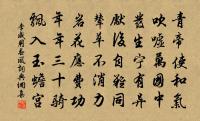 青帝使和氣
吹噓萬國中
發生寧有異
後自難同
輦草不消力
岩花應費功
年年三十騎
飄入玉蟾宮
李咸用春風詞典網